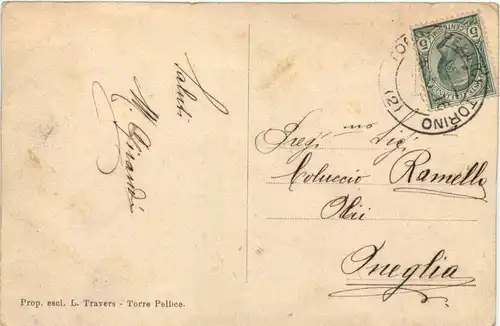 Saluti
M Girardi
Preg.mo Sig.
Coluccio Ramello
Olii
Oneglia
Prop. escl. L. Travers - Torre Pellice.
TORINO
(2)